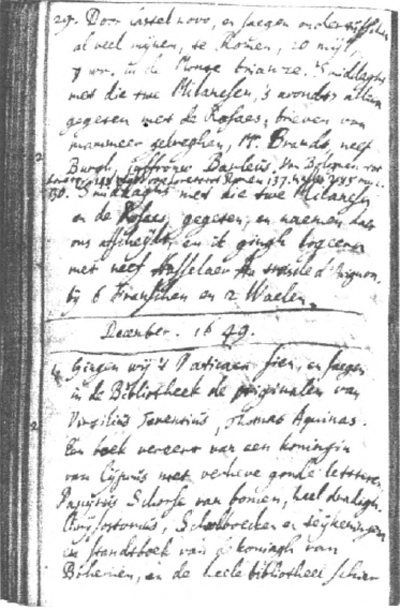 29. Door Castel novo, en saegen onder tusschen
al veel mijnen, te Romen, 20 mijl,
7 ur. in de Monte brianze. 'S middaghs
met die twe Milanesen, 's avonts allein
gegeten met de Rosaes, brieven van
mammeer gekreghen, Mr. Brandt, neef
Burgh, Juffrouw Basleus. Van Bolonien tot
Romen 137.
30. S'middaghs met die twe Milanesen
en de Rosaes, gegeten, en naemen daer
ons afscheijt, en ik gingh logeeren
met neef Hasselaer
bij 6 Franschen en 2 Waelen.
December. 1649.
1 Gingen wij 't Vaticaen sien, en saegen
in de Bibliotheek de originalen van
Virgilius Terentius, Thomas Aquinas.
Een boek vereert van een koningin
van Cyprus met verheve goude letteren,
Papyrus Schorse van bomen, heel
Chrysostomus, en teijkeningen
en standtboek van de koningh van
Bohemen, en de heele bibliotheek